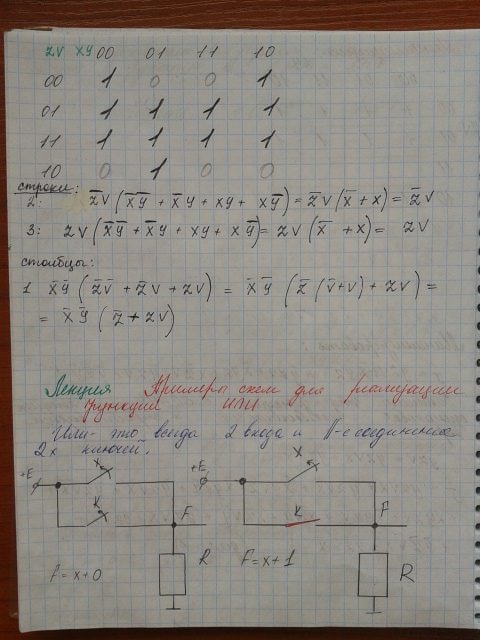 ZV XY 00 01 11 10
00 1 0 0 1
01 1 1 1 1
11 1 1 1 1
10 0 1 0 0
строки:
2: z̅v (x̅y̅ + x̅y + xy + xy̅) = z̅v (x̅ + x) = z̅v
3: zv (x̅y̅ + x̅y + xy + xy̅) = zv (x̅ + x) = zv
столбцы:
1 x̅y̅ (z̅v̅ + z̅v + zv) = x̅y̅ (z̅ (v̅+v) + zv) =
= x̅y̅ (z̅ + zv)
Лекция Примеры схем для реализации
функции ИЛИ
Или - это всегда 2 входа и ||-е соединение
2х ключей.
+E X F K R
F = x+0
+E X F K R
F = x+1